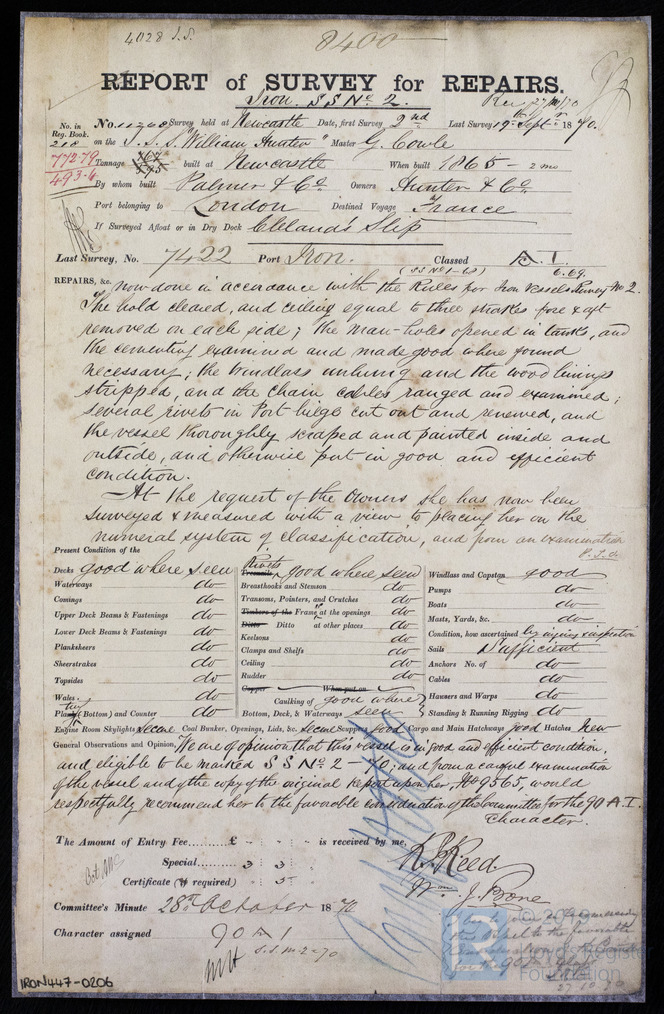 4028 I.S.
8400
REPORT of SURVEY for REPAIRS.
Iron. S S No 2.
Rec 27/10/70
No. in Reg. Book. No. 11268 Survey held at Newcastle Date, first Survey 2nd Last Survey 19th Septr 1870.
218 on the S.S. "William Hunter" Master G. Cowle
772.79 Tonnage built at Newcastle When built 1865 - 2 mo
493.6
By whom built Palmer & Co Owners Hunter & Co
Port belonging to London Destined Voyage France
If Surveyed Afloat or in Dry Dock Cleland's Slip
Last Survey, No. 7422 Port Iron. Classed A.1.
(SS No 1-68) 6.69.
REPAIRS, &c. now done in accordance with the Rules for Iron vessels Survey No 2.
The hold cleared, and ceiling equal to three strakes fore & aft
removed on each side; the man-holes opened in tanks, and
the cementing examined and made good where found
necessary; the windlass unhung and the wood linings
stripped, and the chain cables ranged and examined;
several rivets in Port bilge cut out and renewed, and
the vessel thoroughly scraped and painted inside and
outside, and otherwise put in good and efficient
condition.
At the request of the Owners she has now been
surveyed & measured with a view to placing her on the
numeral system of classification, and from an examination
P.T.O.
Present Condition of the
Decks good where seen Rivets Treenails good where seen Windlass and Capstan good
Waterways do Breasthooks and Stemson do Pumps do
Comings do Transoms, Pointers, and Crutches do Boats do
Upper Deck Beams & Fastenings do Timbers of the Frame at the openings do Masts, Yards, &c. do
Lower Deck Beams & Fastenings do Ditto Ditto at other places do Condition, how ascertained by inquiry & inspection
Planksheers do Keelsons do Sails Sufficient
Sheerstrakes do Clamps and Shelfs do Anchors No. of do
Topsides do Ceiling do Cables do
Wales do Rudder do Hawsers and Warps do
Plating (Bottom) and Counter do Copper When put on Standing & Running Rigging do
Caulking of Bottom, Deck, & Waterways good where seen
Engine Room Skylights secure Coal Bunker, Openings, Lids, &c. secure Scuppers good Cargo and Main Hatchways good Hatches New
General Observations and Opinion, We are of opinion that this vessel is in good and efficient condition,
and eligible to be marked S S No 2 - 70; and from a careful examination
of the vessel and of the copy of the original Report upon her, No 9565, would
respectfully recommend her to the favorable consideration of the Committee for the 90 A.1.
Character.
The Amount of Entry Fee £ is received by me,
Special 3 3
Certificate (if required) 5
R. Reed
Wm J. Bone
Committee's Minute 28th October 1870
Character assigned 90 A 1
S.S. No 2-70
27.10.70
Lloyd's Register
Foundation
IRON447-0206